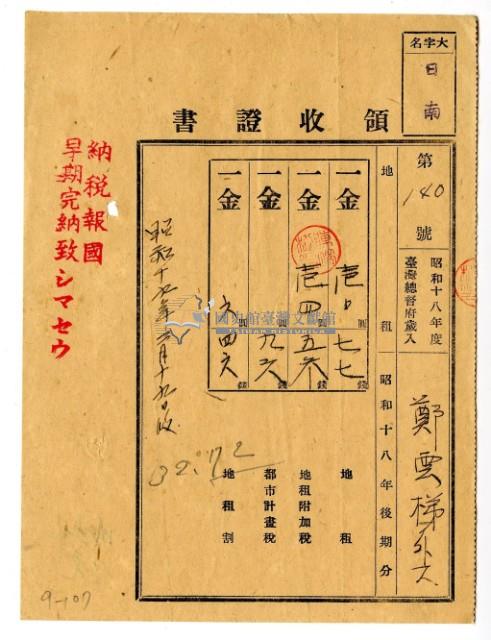 大字名
日南
領收證書
第140號
昭和十八年度
臺灣總督府歲入
鄭雲梯外六
地租 昭和十八年後期分
一金 圓 七七錢 地租
一金 壱四圓五六錢 地租附加稅
一金 圓九六錢 都市計畫稅
一金 六圓四六錢 地租割
昭和十九年 月十九日
32.72
納稅報國
早期完納致シマセウ
國史館臺灣文獻館
TAIWAN HISTORICA
9-107